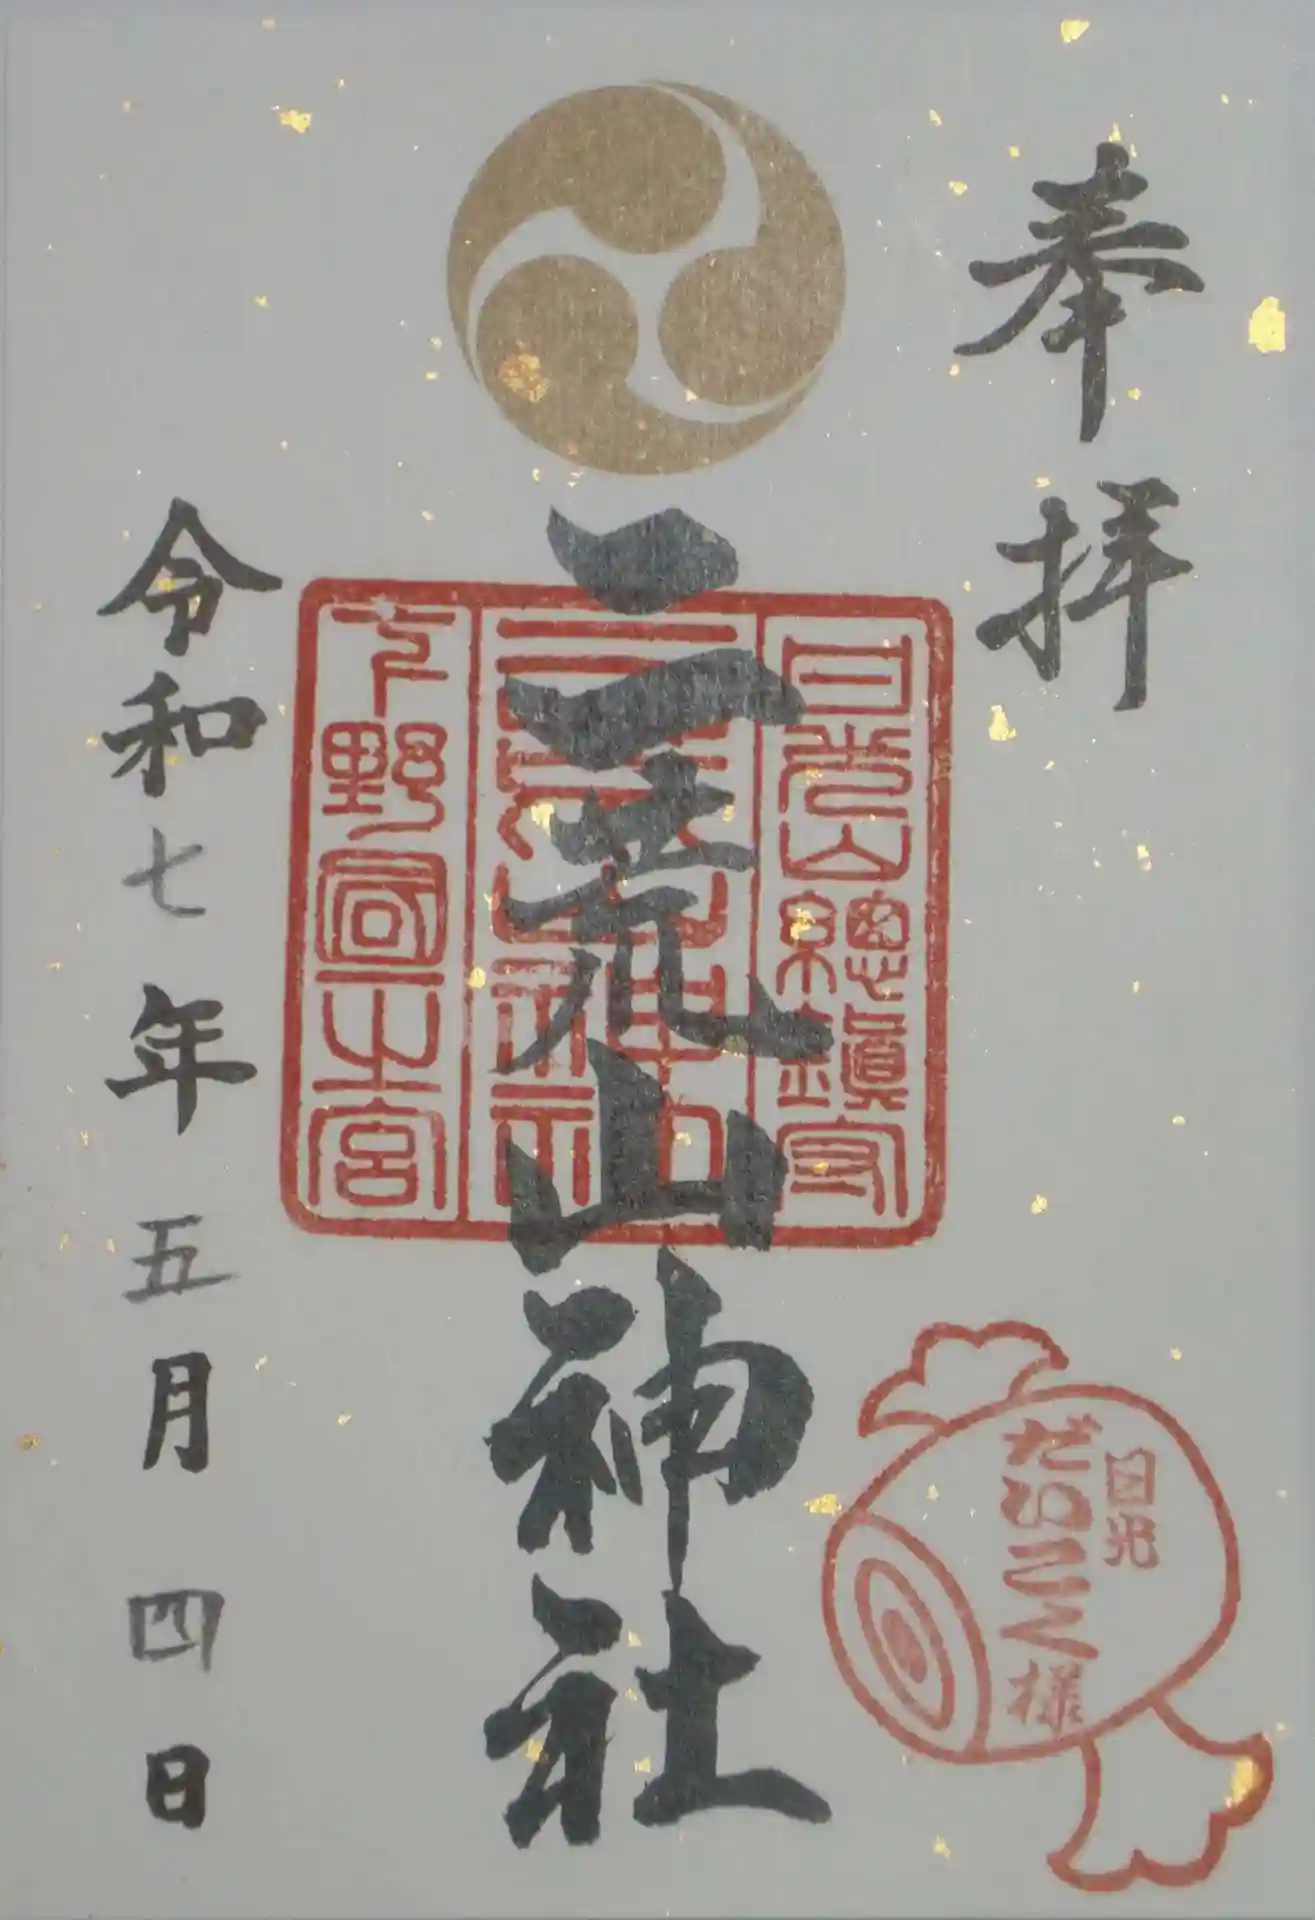 奉拝
日光山總鎮守
二荒山神社
下野國一之宮
二荒山神社
令和七年五月四日
日光
だいこく様